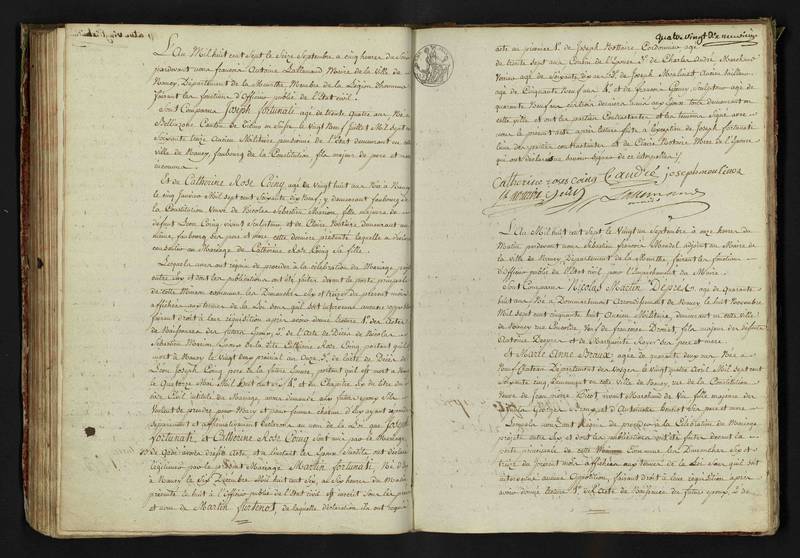 L'An Mil huit cent Sept le Seize Septembre a cinq heures du Soir
pardevant nous françois Antoine Lallemand Maire de la Ville de
Nancy, Département de la Meurthe Membre de la Légion d'honneur
faisant les fonctions d'officier public de l'Etat civil.
Sont Comparus Joseph fortunati agé de trente quatre ans Né a
Bellinzone, Canton de en Suisse le Vingt Neuf Juillet Mil Sept cent
Soixante treize Ancien Militaire pensionné de l'Etat demeurant en cette
ville de Nancy, faubourg de la Constitution fils majeur de père et mère
inconnus
Et de Catherine Rose Coinq, agée de Vingt huit ans Née a Nancy
le cinq Janvier Mil Sept cent Soixante dix Neuf, y demeurant faubourg de
la Constitution Veuve de Nicolas Sébastien Marion, fille majeure de
défunt Léon Coinq vivant Sculpteur et de Claire Nottaire demeurant au
même faubourg Ses père et mère, cette dernière présente laquelle a déclaré
consentir au Mariage de Catherine Rose Coinq Sa fille.
Lesquels nous ont requis de procéder à la célébration du Mariage projetté
entre eux et dont les publications ont été faites devant la porte principale
de cette Maison commune les Dimanches Six et treize du présent mois
affichées aux termes de la Loi Sans qu'il soit intervenu aucune opposition
faisant droit à leur réquisition après avoir donné lecture 1º. des Actes
de Naissances des futurs Epoux, 2º. de l'Acte de Décès de Nicolas
Sébastien Marion, Epoux de la dite Catherine Rose Coinq portant qu'il est
mort à Nancy le Vingt deux prairial an Onze, 3º. de l'acte de Décès de
Léon Joseph Coinq père de la future Epouse, portant qu'il est mort a Nancy
le Quatorze Mai Mil huit cent Six 4º. et du Chapitre Six du titre du
Code Civil intitulé du Mariage, avons demandé aux futurs époux S'ils
Veulent se prendre pour Mary et pour femme chacun d'eux ayant répondu
séparément et affirmativement déclarons au nom de la Loi que Joseph
fortunati, et Catherine Rose Coinq sont unis par le Mariage.
De quoi avons dressé Acte, et a l'instant les Epoux Susdits ont déclaré
légitimer par le présent Mariage Martin fortunati, Né d'eux
à Nancy le Six Décembre Mil huit cent Six, a Six heures du Matin
présenté le huit à l'officier public de l'Etat civil et inscrit sous les prénoms
et nom de Martin furtenot, de laquelle déclaration ils ont requis
Quatre vingt dix neuvième
acte en présence 1º. de Joseph Nottaire Cordonnier agé
de trente sept ans Cousin de l'Epouse 2º. de Charles André Marchand
agé de Soixante dix ans 3º. de Joseph Moulinet Ancien tailleur
agé de Cinquante Neuf ans et 4º. de françois Goury, agé de
quarante Neuf ans amis des époux tous demeurant en
cette ville et ont les parties Contractantes et les témoins Signé avec
nous le présent acte après lecture faite a l'exception de Joseph fortunati
l'un des parties contractantes et de Claire Nottaire Mère de l'Epouse
qui ont déclaré ne Savoir Signer de ce interpellés./.
Catherine rose coinq C andré joseph moulinet
Lallemand
L'An Mil huit cent Sept le Vingt un Septembre à onze heures du
Matin pardevant nous Sébastien françois Mandel adjoint au Maire de
la Ville de Nancy, Département de la Meurthe, faisant les fonctions
d'officier public de l'Etat civil pour l'Empêchement du Maire.
Sont Comparus Nicolas Martin Depret, agé de Quarante
huit ans Né a Dommartemont Arrondissement de Nancy le huit Novembre
Mil Sept cent cinquante huit Ancien Militaire, demeurant en cette ville
de Nancy rue Veuf de françoise Drouet, fils majeur des défunts
Antoine Depret et de Marguerite Royer Ses père et mère.
Et Marie Anne Beaux agée de quarante deux ans Née a
Neufchateau Département des Vosges le Vingt quatre Avril Mil Sept cent
soixante cinq demeurant en cette ville de Nancy, rue de la Constitution
Veuve de Jean pierre Dicot vivant Marchand de Vin fille majeure des
défunts George Beaux, et d'Antoinette Ses père et mère.
Lesquels nous ont Requis de procéder à la Célébration du Mariage
projetté entre eux et dont les publications ont été faites devant la
porte principale de cette Maison Commune les Dimanches Six et
treize du présent mois affichées aux termes de la Loi Sans qu'il soit
intervenu aucune Opposition, faisant droit à leur réquisition après
avoir donné lecture 1º. de l'acte de Naissance du futur époux, 2º. de